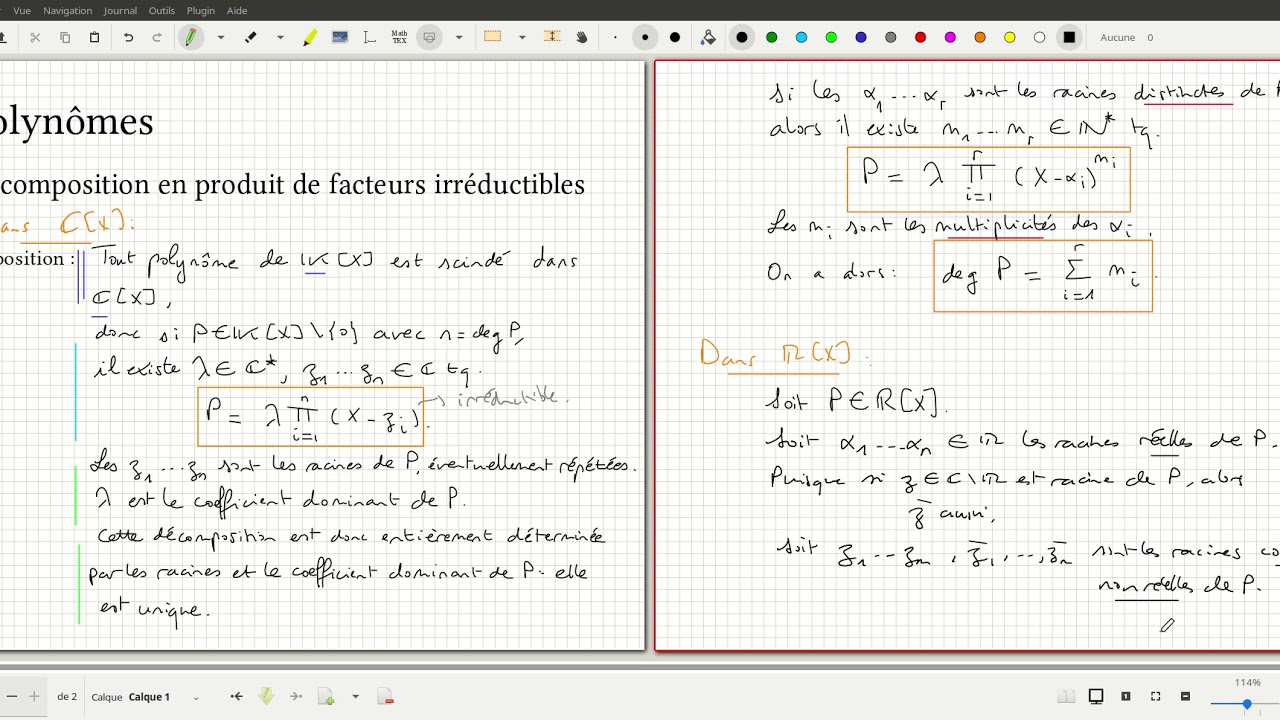 Vue Navigation Journal Outils Plugin Aide
Math TEX
Aucune 0
olynômes
composition en produit de facteurs irréductibles
ans ℂ[X] :
position : Tout polynôme de 𝕂[X] est scindé dans
ℂ[X],
donc si P∈𝕂[X]\{0} avec n = deg P,
il existe λ ∈ ℂ*, z₁ ... zₙ ∈ ℂ tq.
P = λ ∏ᵢ₌₁ⁿ (X - zᵢ). → irréductible.
Les z₁ ... zₙ sont les racines de P, éventuellement répétées.
λ est le coefficient dominant de P.
Cette décomposition est donc entièrement déterminée
par les racines et le coefficient dominant de P. elle
est unique.
si les α₁ ... αᵣ sont les racines distinctes de P
alors il existe n₁ ... nᵣ ∈ ℕ* tq.
P = λ ∏ᵢ₌₁ʳ (X - αᵢ)ⁿⁱ
Les nᵢ sont les multiplicités des αᵢ.
On a alors : deg P = ∑ᵢ₌₁ʳ nᵢ.
Dans ℝ[X] :
Soit P∈ℝ[X].
Soit α₁ ... αₙ ∈ ℝ les racines réelles de P.
Puisque si z ∈ ℂ\ℝ est racine de P, alors
z̄ aussi,
Soit z₁ ... zₘ, z̄₁, ..., z̄ₘ sont les racines co
non réelles de P.
de 2 Calque Calque 1
114%